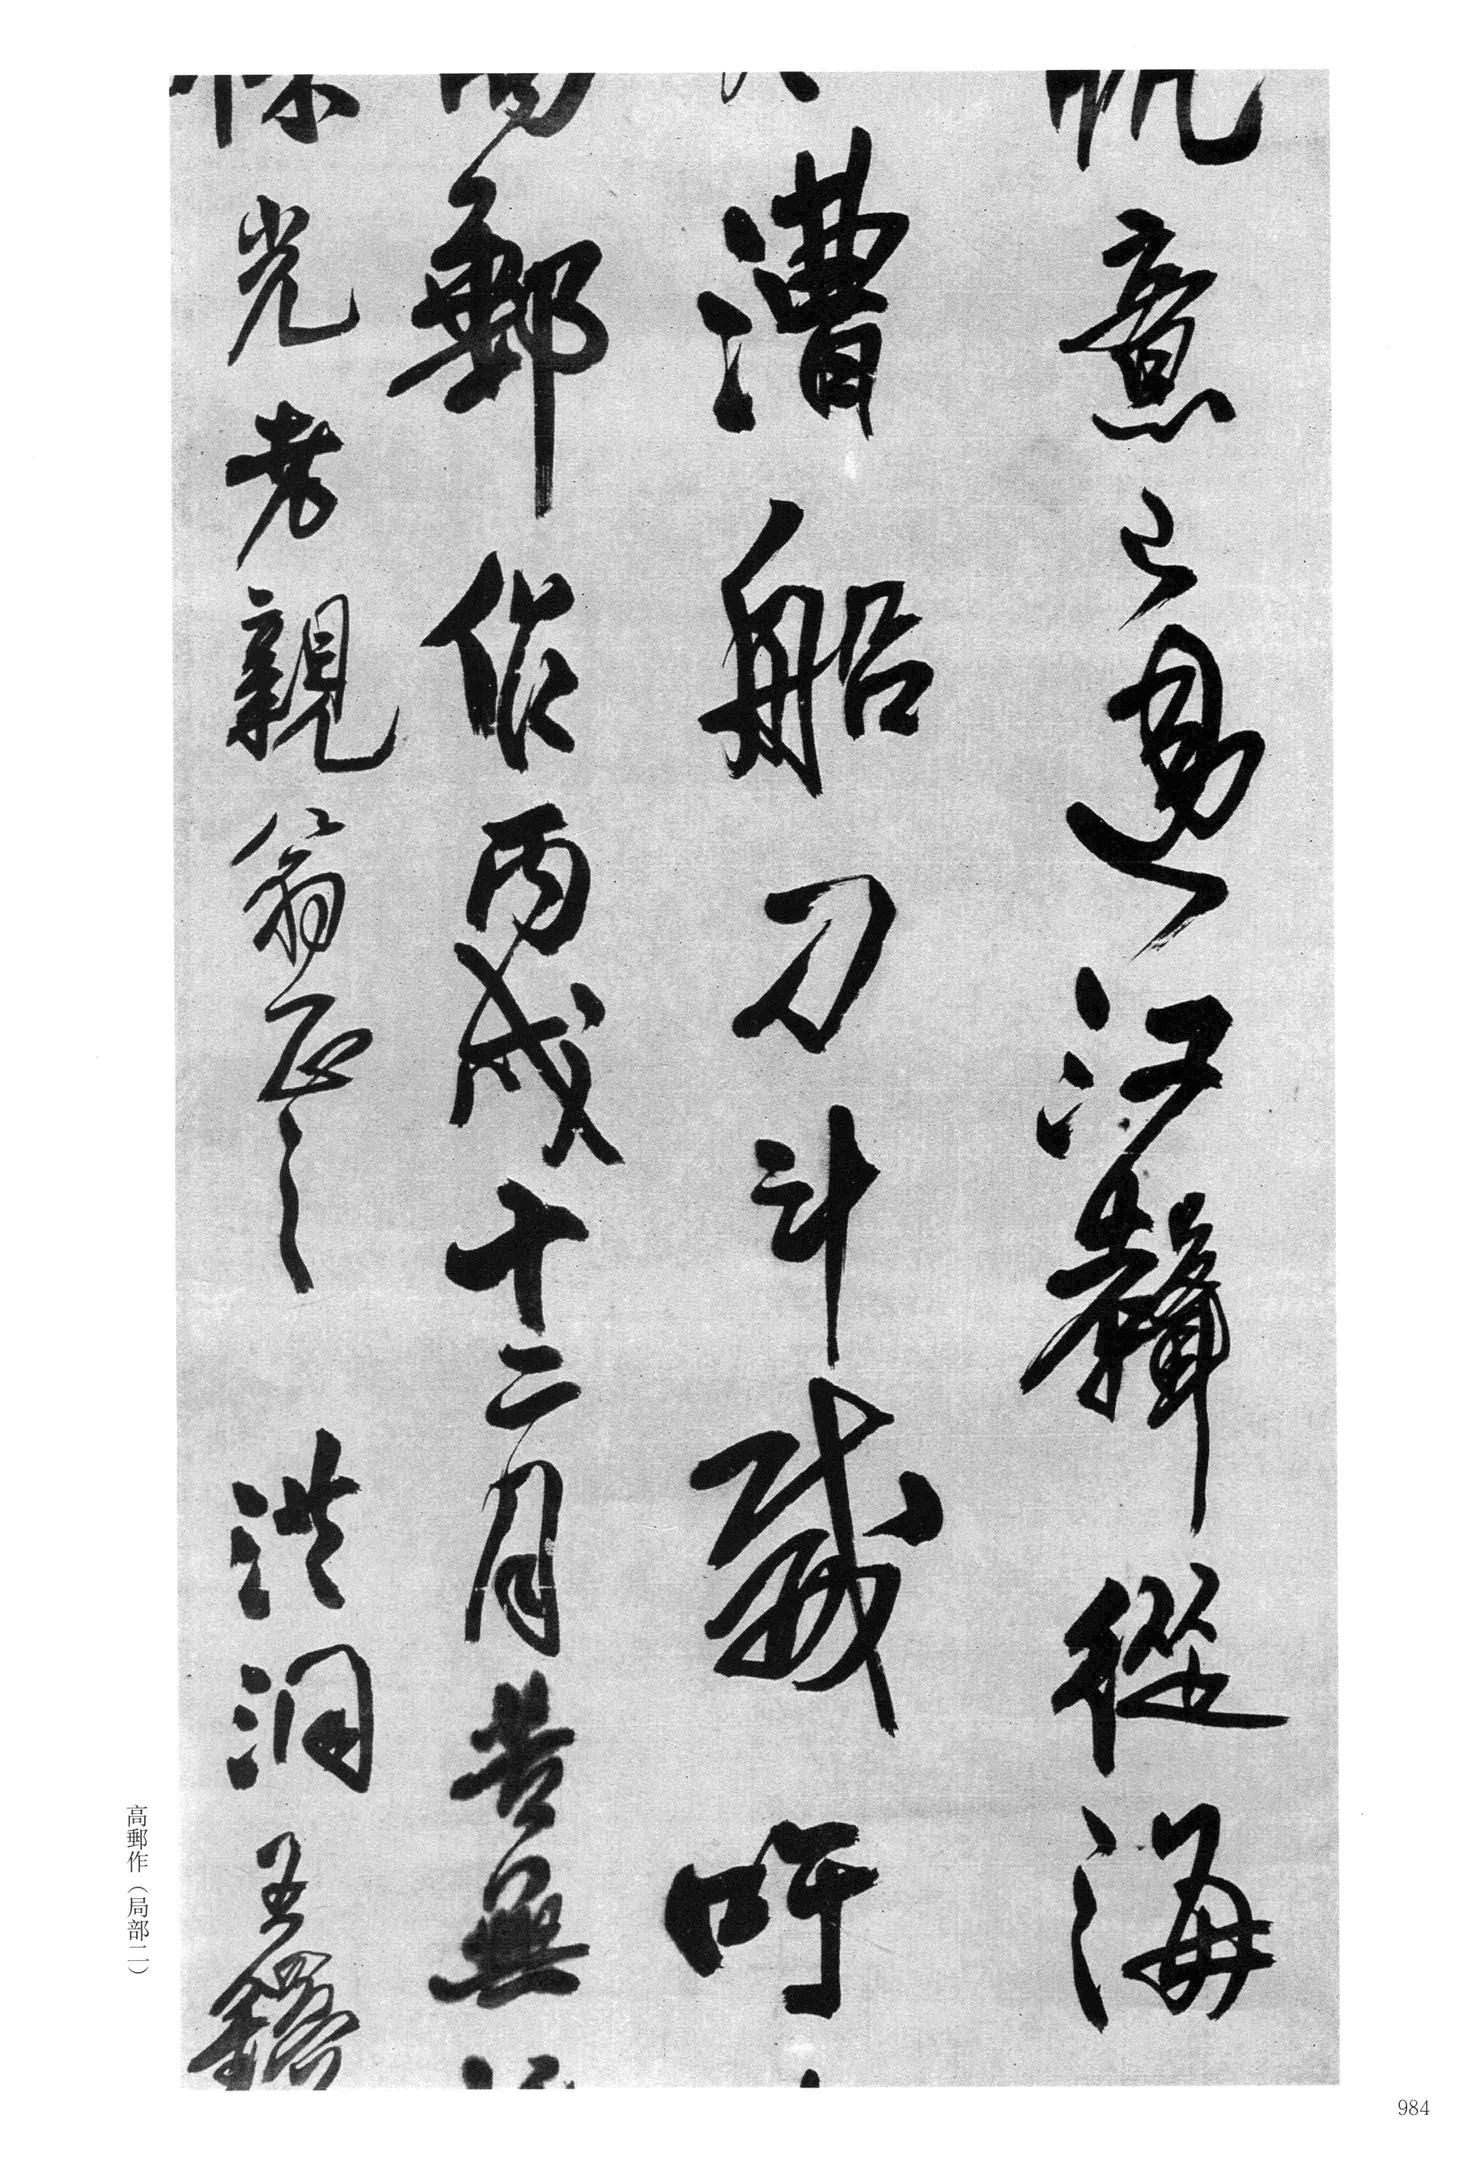 帆意已邊江聲從海
漕船刀斗 吁
高郵作丙戌十二月
光老親翁正之 洪洞王鐸
高郵作（局部二）
984